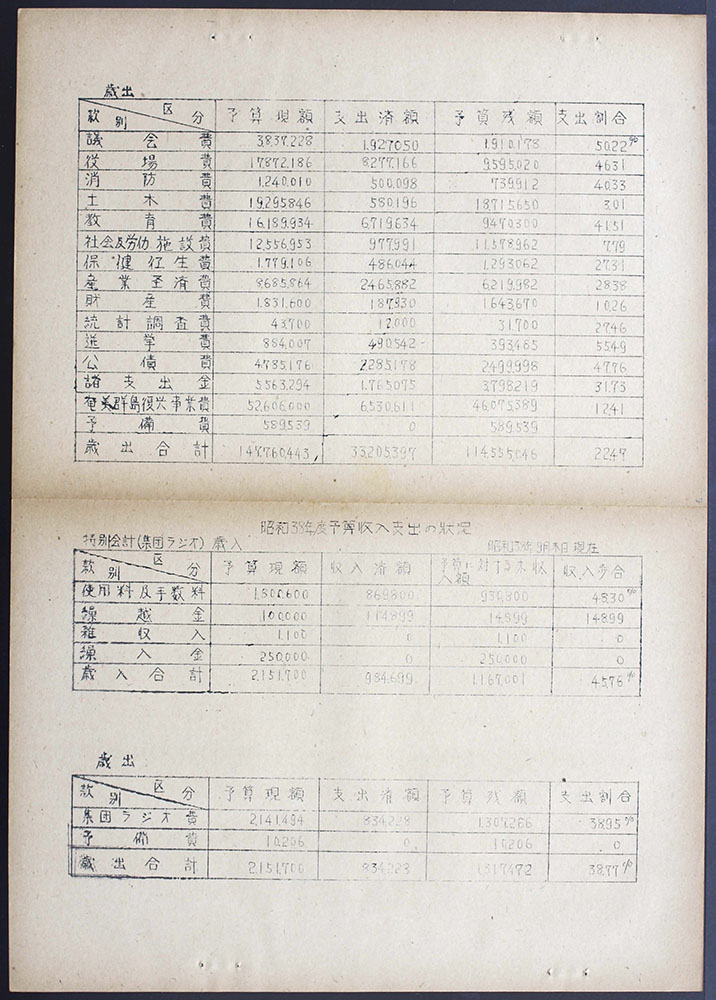 歳出
款別 区分 予算現額 支出済額 予算残額 支出割合
議会費 3,837,228 1,927,050 1,910,178 50.22%
役場費 17,872,186 8,277,166 9,595,020 46.31
消防費 1,240,010 500,098 739,912 40.33
土木費 19,295,846 580,196 18,715,650 3.01
教育費 16,189,934 6,719,634 9,470,300 41.51
社会及労仂施設費 12,556,953 977,991 11,578,962 7.79
保健衛生費 1,779,106 486,044 1,293,062 27.31
産業経済費 8,685,864 2,465,882 6,219,982 28.38
財産費 1,831,600 187,930 1,643,670 10.26
統計調査費 43,700 12,000 31,700 27.46
選挙費 884,007 490,542 393,465 55.49
公債費 4,785,176 2,285,178 2,499,998 47.76
諸支出金 5,563,294 1,765,075 3,798,219 31.73
奄美群島復興事業費 52,606,000 6,530,611 46,075,389 12.41
予備費 589,539 0 589,539
歳出合計 147,760,443 33,205,397 114,555,046 22.47
昭和38年度予算収入支出の状況
特別会計(集团ラジオ) 歳入 昭和38年9月末日現在
款別 区分 予算現額 収入済額 予算に対する未収入額 収入歩合
使用料及手数料 1,800,600 869,800 930,800 48.30%
繰越金 100,000 114,899 14,899 148.99
雑収入 1,100 0 1,100 0
繰入金 250,000 0 250,000 0
歳入合計 2,151,700 984,699 1,167,001 45.76%
歳出
款別 区分 予算現額 支出済額 予算残額 支出割合
集团ラジオ費 2,141,494 834,228 1,307,266 38.95%
予備費 10,206 0 10,206 0
歳出合計 2,151,700 834,228 1,317,472 38.77%